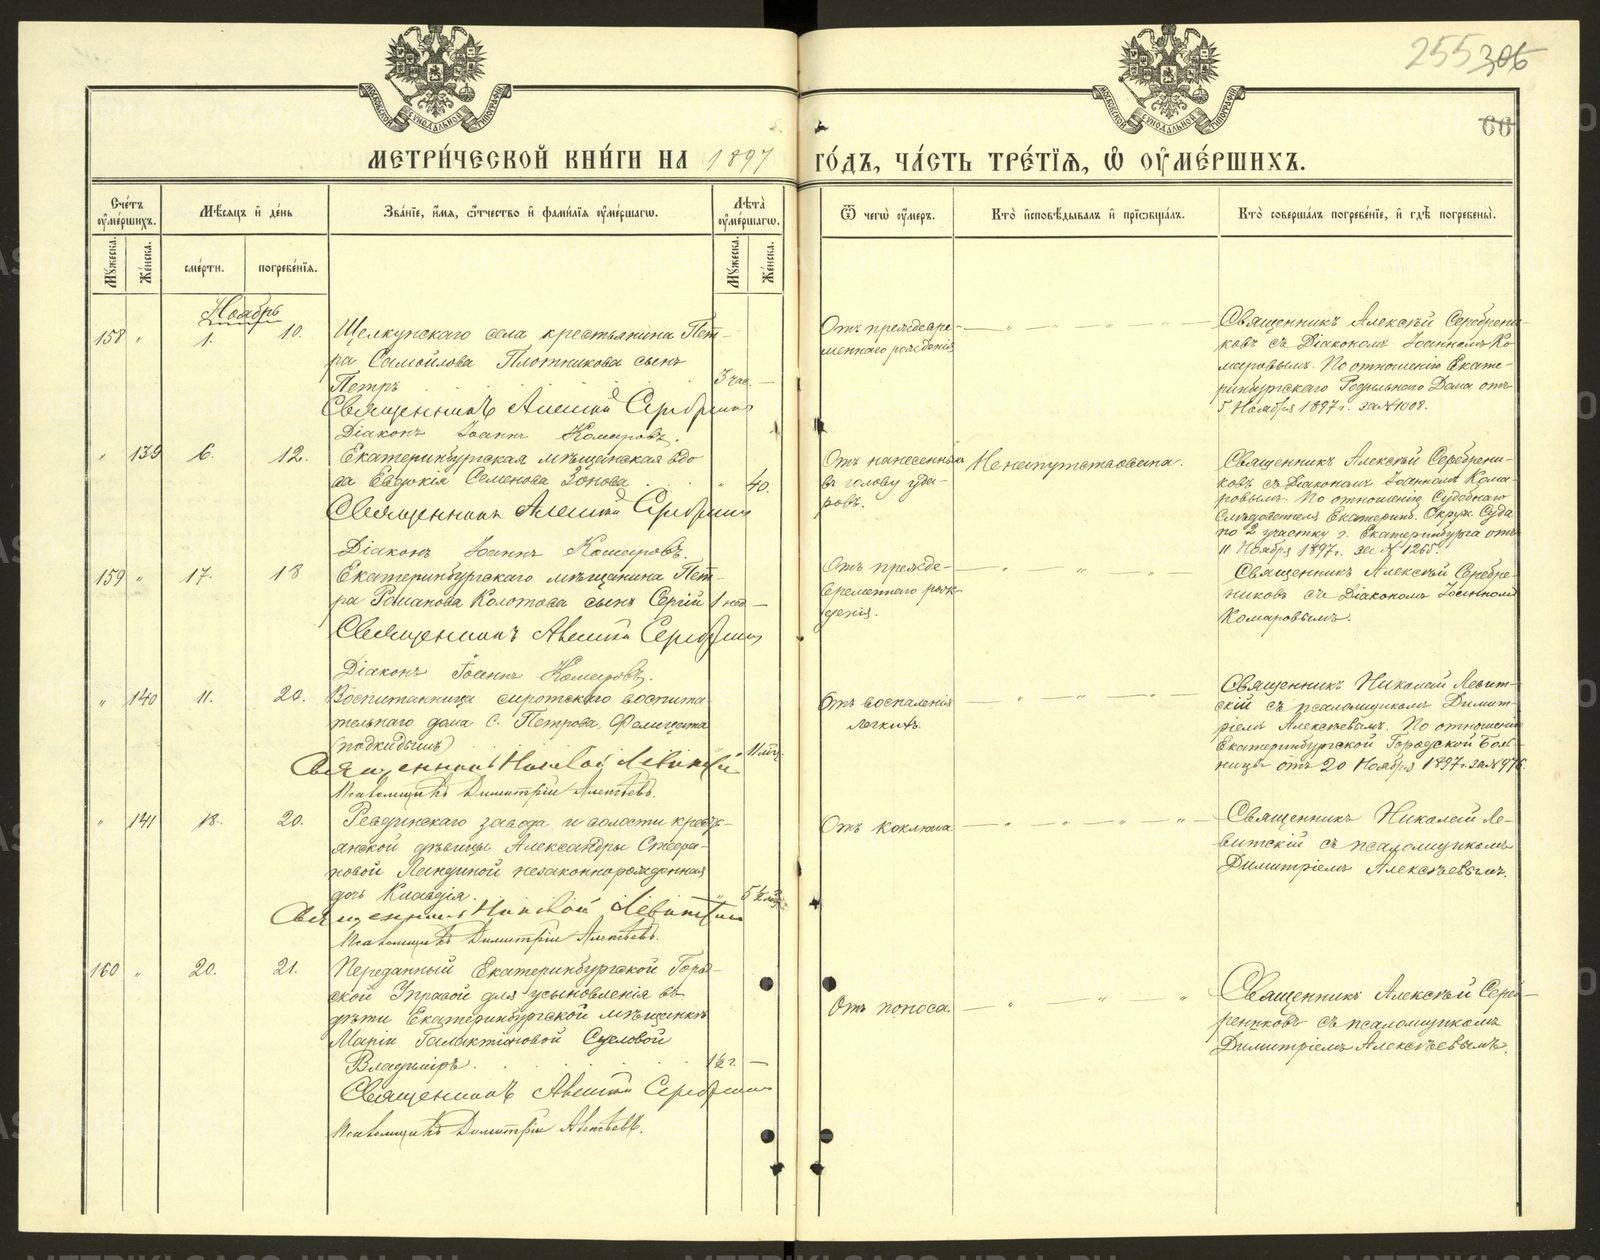 255 306
66
МЕТРИ́ЧЕСКОЙ КНИ́ГИ НА 1897 ГО́ДЪ, ЧА́СТЬ ТРЕ́ТЇѦ, Ѡ ОУМЕ́РШИХЪ.
Сче́тъ оумершихъ.
Мѣсяцъ и день
Званіе, имя, отчество и фамилія оумершаго.
Лѣта оумершаго.
Ѿ чего оумеръ.
Кто исповѣдывалъ и пріобщалъ.
Кто совершалъ погребеніе, и гдѣ погребены.
Мужеска.
Женска.
смерти.
погребенія.
Мужеска.
Женска.
Ноябрь
158 " 1. 10. Щелкунскаго села крестьянина Пет-
ра Самойлова Плотникова сынъ
Петръ 3 час. —
Священникъ Алексѣй Серебренниковъ
Діаконъ Іоаннъ Комаровъ.
Отъ преждевре-
меннаго рожденія
Священникъ Алексѣй Серебрени-
ковъ съ Діакономъ Іоанномъ Ко
маровымъ. По отношенію Екате-
ринбургскаго Родильнаго Дома отъ
5 Ноября 1897 г. за № 1008.
" 139 6. 12. Екатеринбургская мѣщанская вдо
ва Евдокія Семенова Зонова " 40.
Священникъ Алексѣй Серебренниковъ
Діаконъ Іоаннъ Комаровъ.
Отъ нанесенныхъ
въ голову уда-
ровъ.
Ненапутствована.
Священникъ Алексѣй Серебрени-
ковъ съ Діакономъ Іоанномъ Кома-
ровымъ. По отношенію Судебнаго
Слѣдователя Екатеринб. Окруж. Суда
по 2 участку г. Екатеринбурга отъ
11 Ноября 1897 г. за № 1265.
159 " 17. 18 Екатеринбургскаго мѣщанина Пет-
ра Романова Колотова сынъ Сергій 1 нед —
Священникъ Алексѣй Серебренниковъ
Діаконъ Іоаннъ Комаровъ.
Отъ прежде-
временнаго рож-
денія.
Священникъ Алексѣй Серебре-
никовъ съ Діакономъ Іоанномъ
Комаровымъ.
" 140 11. 20. Воспитанница сиротскаго воспита
тельнаго дома С. Петрова, Фелицата
(подкидышъ) " 11 мѣс.
Священникъ Николай Левитскій
Псаломщикъ Димитрій Алексѣевъ.
Отъ воспаленія
легкихъ.
Священникъ Николай Левит-
скій съ псаломщикомъ Димит-
ріемъ Алексѣевымъ. По отношенію
Екатеринбургской Городской Боль-
ницы отъ 20 Ноября 1897 г. за № 976.
" 141 18. 20. Ревдинскаго завода и волости кресть-
янской дѣвицы Александры Стефа-
новой незаконнорожденная
дочь Клавдія. " 5½ мѣс.
Священникъ Николай Левитскій
Псаломщикъ Димитрій Алексѣевъ.
Отъ коклюша.
Священникъ Николай Ле-
витскій съ псаломщикомъ
Димитріемъ Алексѣевымъ.
160 " 20. 21. Переданный Екатеринбургской Город-
ской Управой для усыновленія въ
дѣти Екатеринбургской мѣщанкѣ
Маріи Галактіоновой Сусловой
Владиміръ. 1½ г. —
Священникъ Алексѣй Серебренниковъ
Псаломщикъ Димитрій Алексѣевъ.
Отъ поноса.
Священникъ Алексѣй Сереб-
рениковъ съ псаломщикомъ
Димитріемъ Алексѣевымъ.